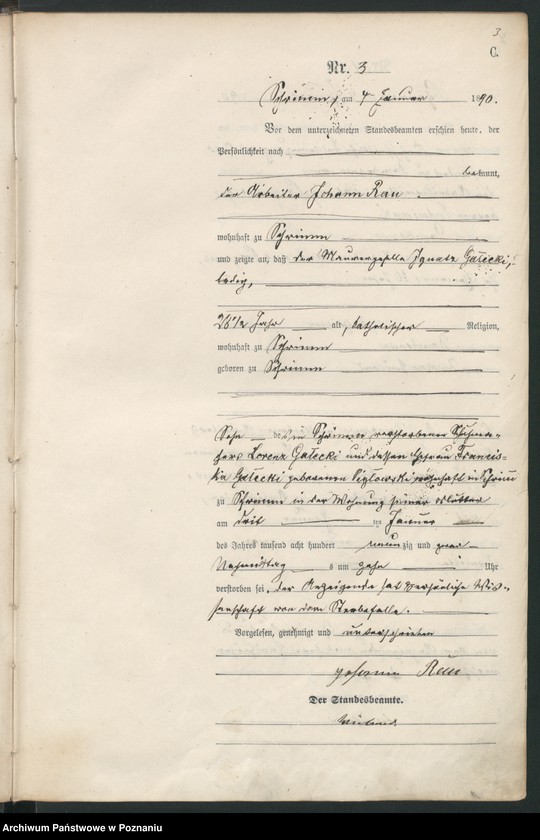 3
C.
Nr. 3
Schrimm, am 4 Januar 1890.
Vor dem unterzeichneten Standesbeamten erschien heute, der
Persönlichkeit nach
bekannt,
der Arbeiter Johann Rau
wohnhaft zu Schrimm
und zeigte an, daß der Maurergeselle Ignatz Gałecki,
ledig,
28 1/2 Jahr alt, katholischer Religion,
wohnhaft zu Schrimm
geboren zu Schrimm
Sohn des in Schrimm verstorbenen
Lorenz Gałecki und dessen Ehefrau Francis=
ka Gałecki geborenen wohnhaft in Schrimm
zu Schrimm in der Wohnung seiner Mutter
am drit ten Januar
des Jahres tausend acht hundert neun zig und zwar
Nachmittag s um zehn Uhr
verstorben sei, der Anzeigende hat persönliche Wis=
senschaft von dem Sterbefalle.
Vorgelesen, genehmigt und unterschrieben
Johann Rau
Der Standesbeamte.
Archiwum Państwowe w Poznaniu